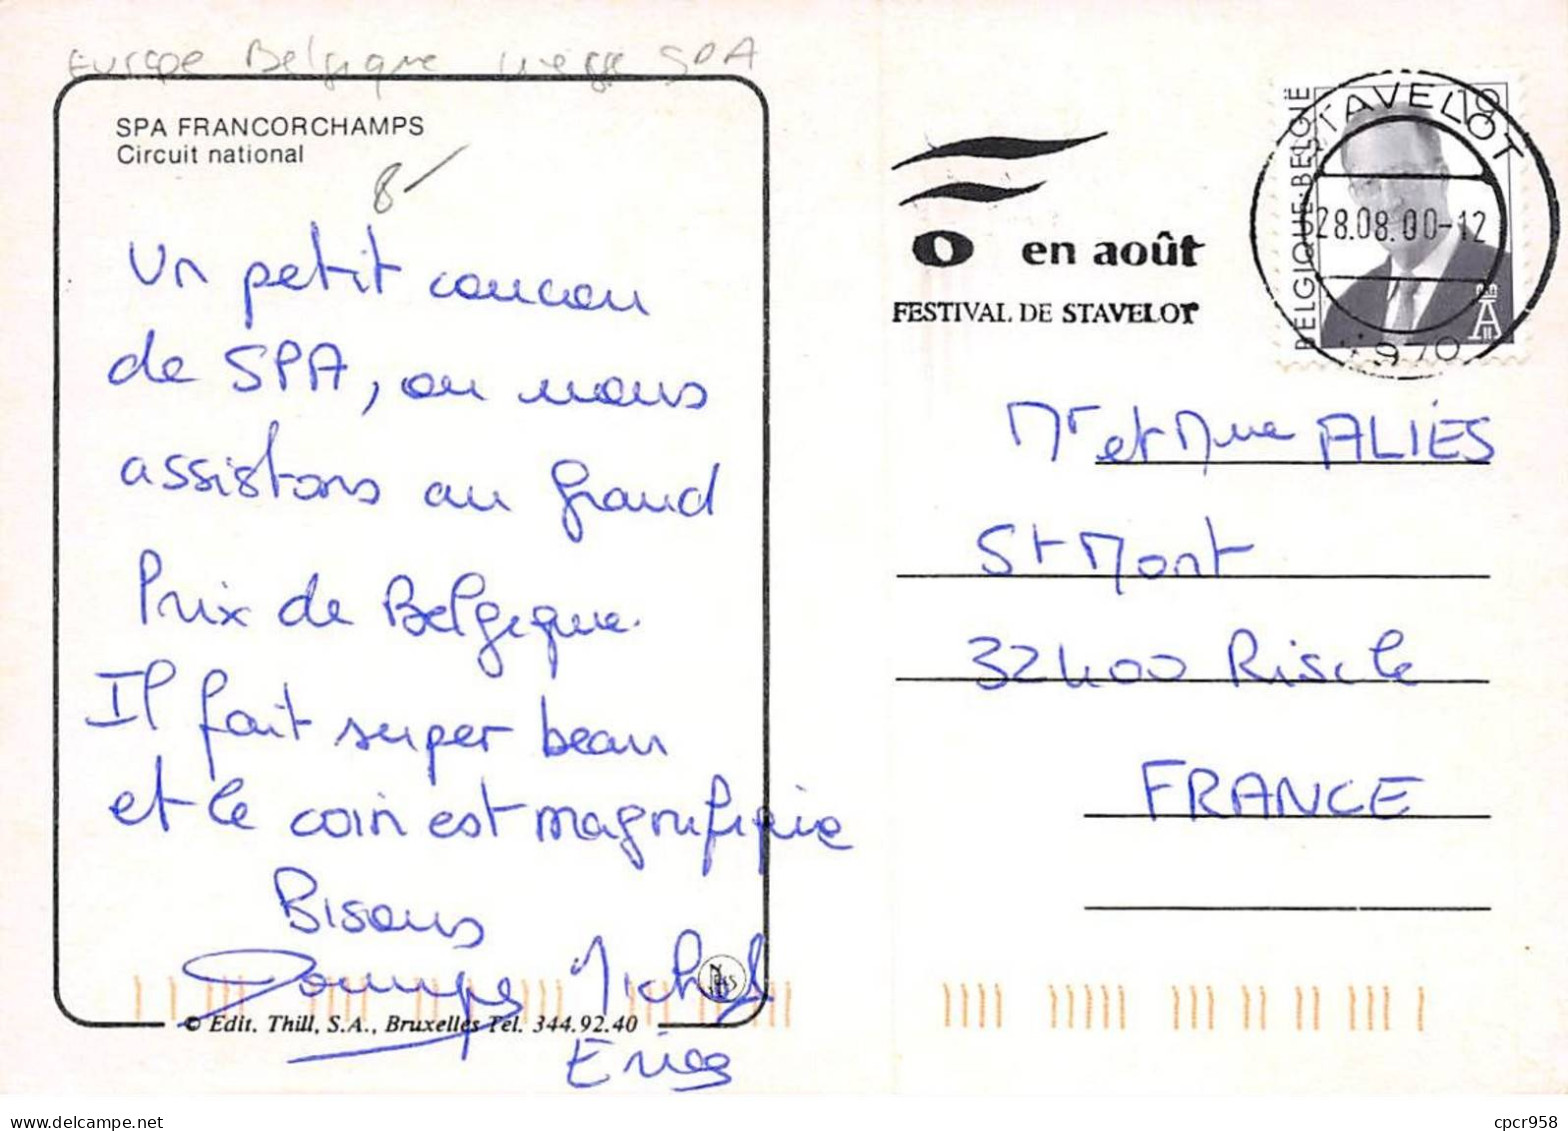 Europe Belgique Liège SPA
SPA FRANCORCHAMPS
Circuit national
8-
Un petit coucou
de SPA, ou nous
assistons au Grand
Prix de Belgique.
Il fait super beau
et le coin est magnifique
Bisous
Michel
© Edit. Thill, S.A., Bruxelles Tel. 344.92.40
en août
FESTIVAL DE STAVELOT
BELGIQUE-BELGIË
STAVELOT
28.08.00-12
4970
Mr et Mme ALIÈS
St Mont
32400 Riscle
FRANCE
cpcr958